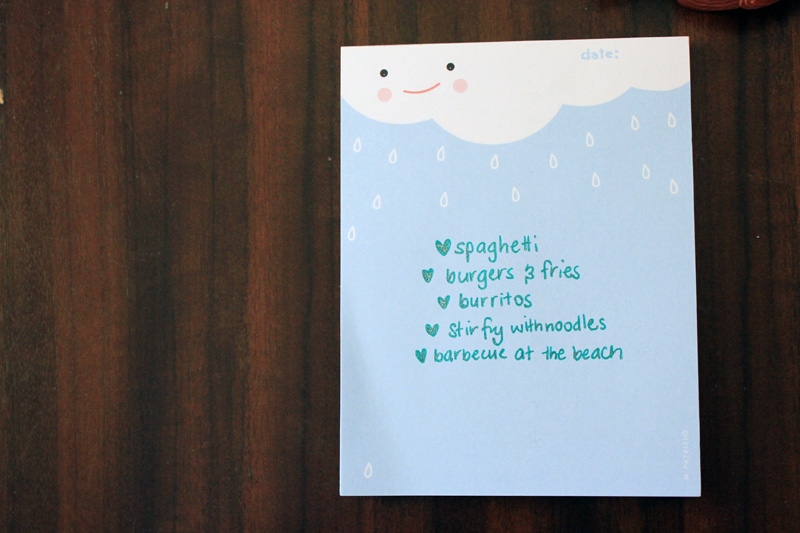 date:
spaghetti
burgers & fries
burritos
stir fry with noodles
barbecue at the beach